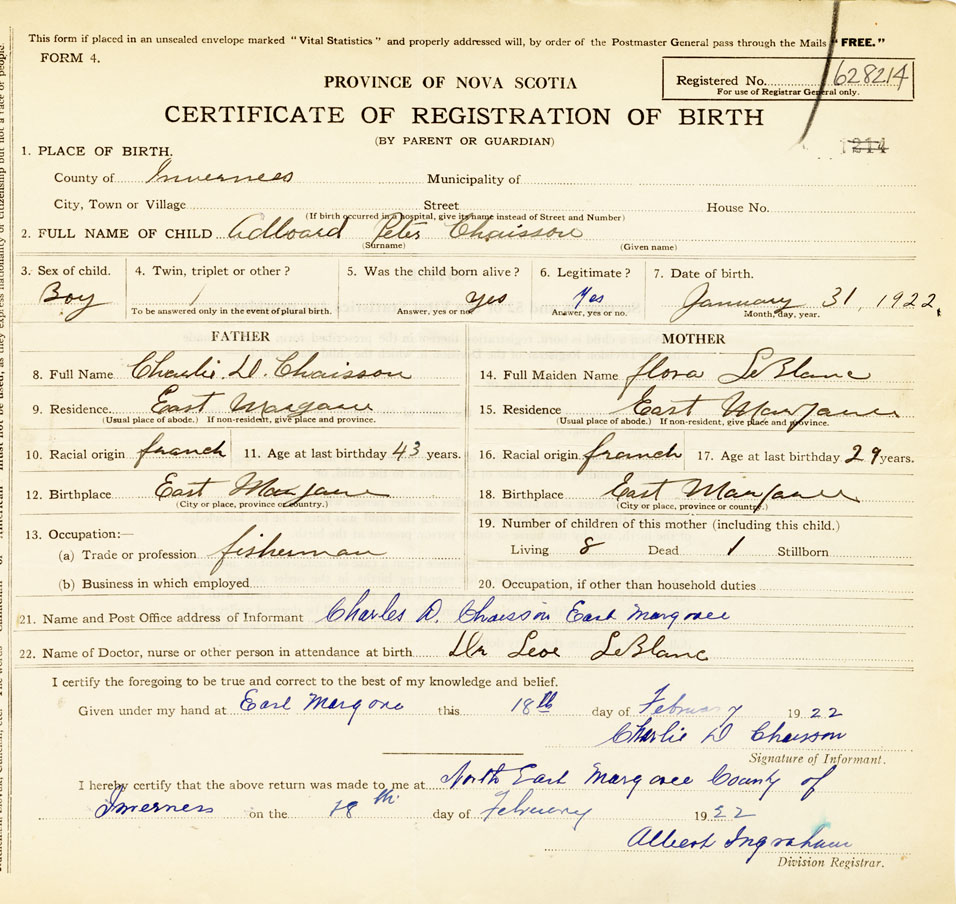 This form if placed in an unsealed envelope marked "Vital Statistics" and properly addressed will, by order of the Postmaster General pass through the Mails "FREE."
FORM 4.
PROVINCE OF NOVA SCOTIA
Registered No. 628214
For use of Registrar General only.
CERTIFICATE OF REGISTRATION OF BIRTH
(BY PARENT OR GUARDIAN)
1214
1. PLACE OF BIRTH.
County of Inverness Municipality of
City, Town or Village Street House No.
(If birth occurred in a hospital, give its name instead of Street and Number)
2. FULL NAME OF CHILD Adlward Peter Chaisson
(Surname) (Given name)
3. Sex of child. 4. Twin, triplet or other? 5. Was the child born alive? 6. Legitimate? 7. Date of birth.
Boy / Yes Yes January 31, 1922.
To be answered only in the event of plural birth. Answer, yes or no. Answer, yes or no. Month, day, year.
FATHER MOTHER
8. Full Name Charlie. D. Chaisson 14. Full Maiden Name flora LeBlanc
9. Residence. East Margaree 15. Residence East Margaree
(Usual place of abode.) If non-resident, give place and province. (Usual place of abode.) If non-resident, give place and province.
10. Racial origin french 11. Age at last birthday 43 years. 16. Racial origin french 17. Age at last birthday 29 years.
12. Birthplace East Margaree 18. Birthplace East Margaree
(City or place, province or country.) (City or place, province or country.)
19. Number of children of this mother (including this child.)
13. Occupation:—
(a) Trade or profession fisherman Living 8 Dead 1 Stillborn
(b) Business in which employed 20. Occupation, if other than household duties
21. Name and Post Office address of Informant Charles D. Chaisson East Margaree
22. Name of Doctor, nurse or other person in attendance at birth Dr Leo LeBlanc
I certify the foregoing to be true and correct to the best of my knowledge and belief.
Given under my hand at East Margaree this 18th day of February 1922
Charlie D Chaisson
Signature of Informant.
I hereby certify that the above return was made to me at North East Margaree County of
Inverness on the 18th day of February 1922
Albert Ingraham
Division Registrar.